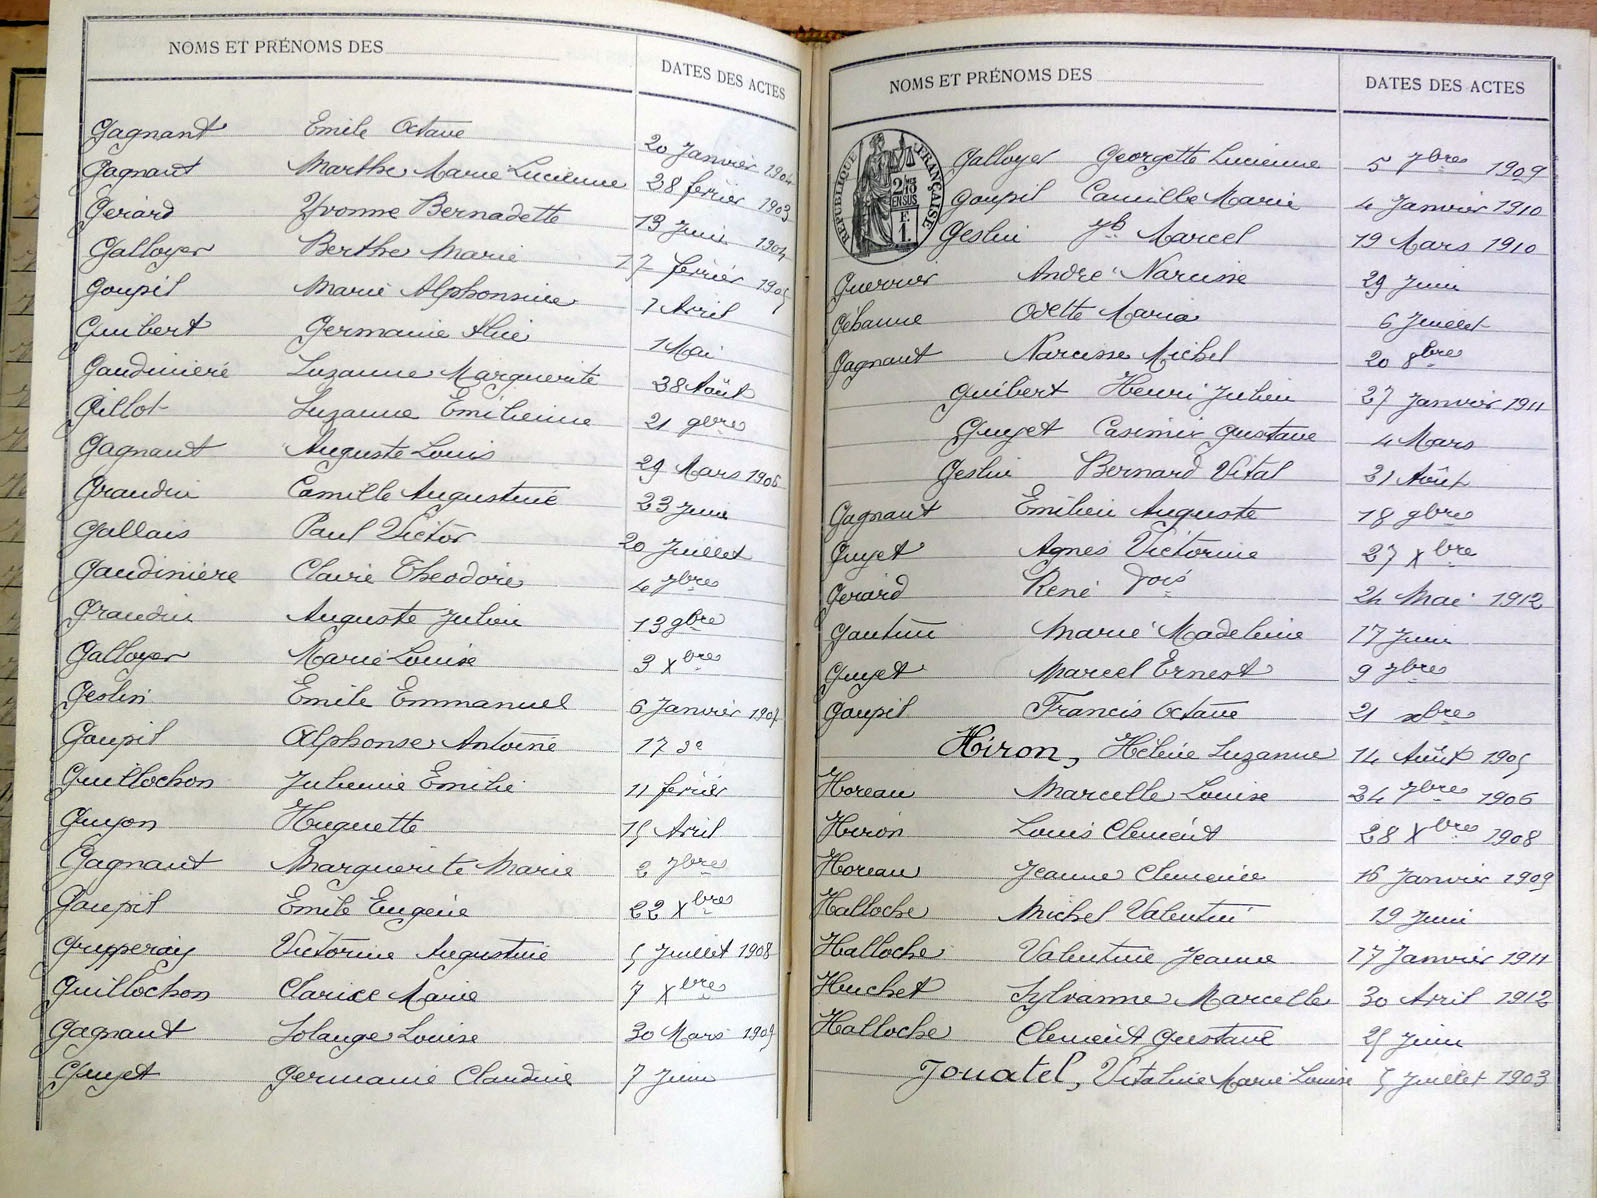 NOMS ET PRÉNOMS DES
DATES DES ACTES
Gagnant Emile Octave 20 Janvier 1904
Gagnant Marthe Marie Lucienne 28 fevrier 1903
Gerard Yvonne Bernadette 13 Juin 1904
Galloyer Berthe Marie 17 fevrier 1905
Goupil Marie Alphonsine 1 Avril
Guibert Germanie 1 Mai
Gaudiniere Suzanne Marguerite 28 Août
Gillot Suzanne Emilienne 21 9bres
Gagnant Auguste Louis 29 Mars 1906
Graudin Camille Augustine 23 Juin
Gallais Paul Victor 20 Juillet
Gaudiniere Claire Theodore 4 7bres
Graudin Auguste Julien 13 9bre
Galloyer Marie Louise 3 Xbres
Geslin Emile Emmanuel 6 Janvier 1907
Goupil Alphonse Antoine 17 do
Guillochon Julienne Emilie 11 fevrier
Guyon Huguette 15 Avril
Gagnant Marguerite Marie 2 7bres
Goupil Emile Eugene 22 Xbres
Grupperay Victorine Augustine 5 Juillet 1908
Guillochon Clarice Marie 7 Xbres
Gagnant Solange Louise 30 Mars 1909
Guyet Germanie Claudine 7 Juin
NOMS ET PRÉNOMS DES
DATES DES ACTES
RÉPUBLIQUE FRANÇAISE
2/10 EN SUS
F. 1.
Galloyer Georgette Lucienne 5 7bres 1909
Goupil Camille Marie 4 Janvier 1910
Geslin Marcel 19 Mars 1910
Guerrier André Narcisse 29 Juin
Gébanne Odette Maria 6 Juillet
Gagnant Narcisse Michel 20 8bres
Guibert Henri Julien 27 Janvier 1911
Guyet Casimir Gustave 4 Mars
Geslin Bernard Vital 21 Août
Gagnant Emilien Auguste 18 9bres
Guyet Agnes Victorine 27 Xbre
Gerard René 24 Mai 1912
Gautin Marie Madeleine 17 Juin
Guyet Marcel Ernest 9 7bres
Goupil Francis Octave 21 xbres
Hiron, Hélène Suzanne 14 Août 1905
Horeau Marcelle Louise 24 7bres 1906
Hiron Louis Clement 28 Xbres 1908
Horeau Jeanne Clemence 16 Janvier 1909
Halloche Michel Valentin 19 Juin
Halloche Valentine Jeanne 17 Janvier 1911
Huchet Sylvanne Marcelle 30 Avril 1912
Halloche Clement Gustave 25 Juin
Jouatel, Vitaline Marie Louise 5 Juillet 1903